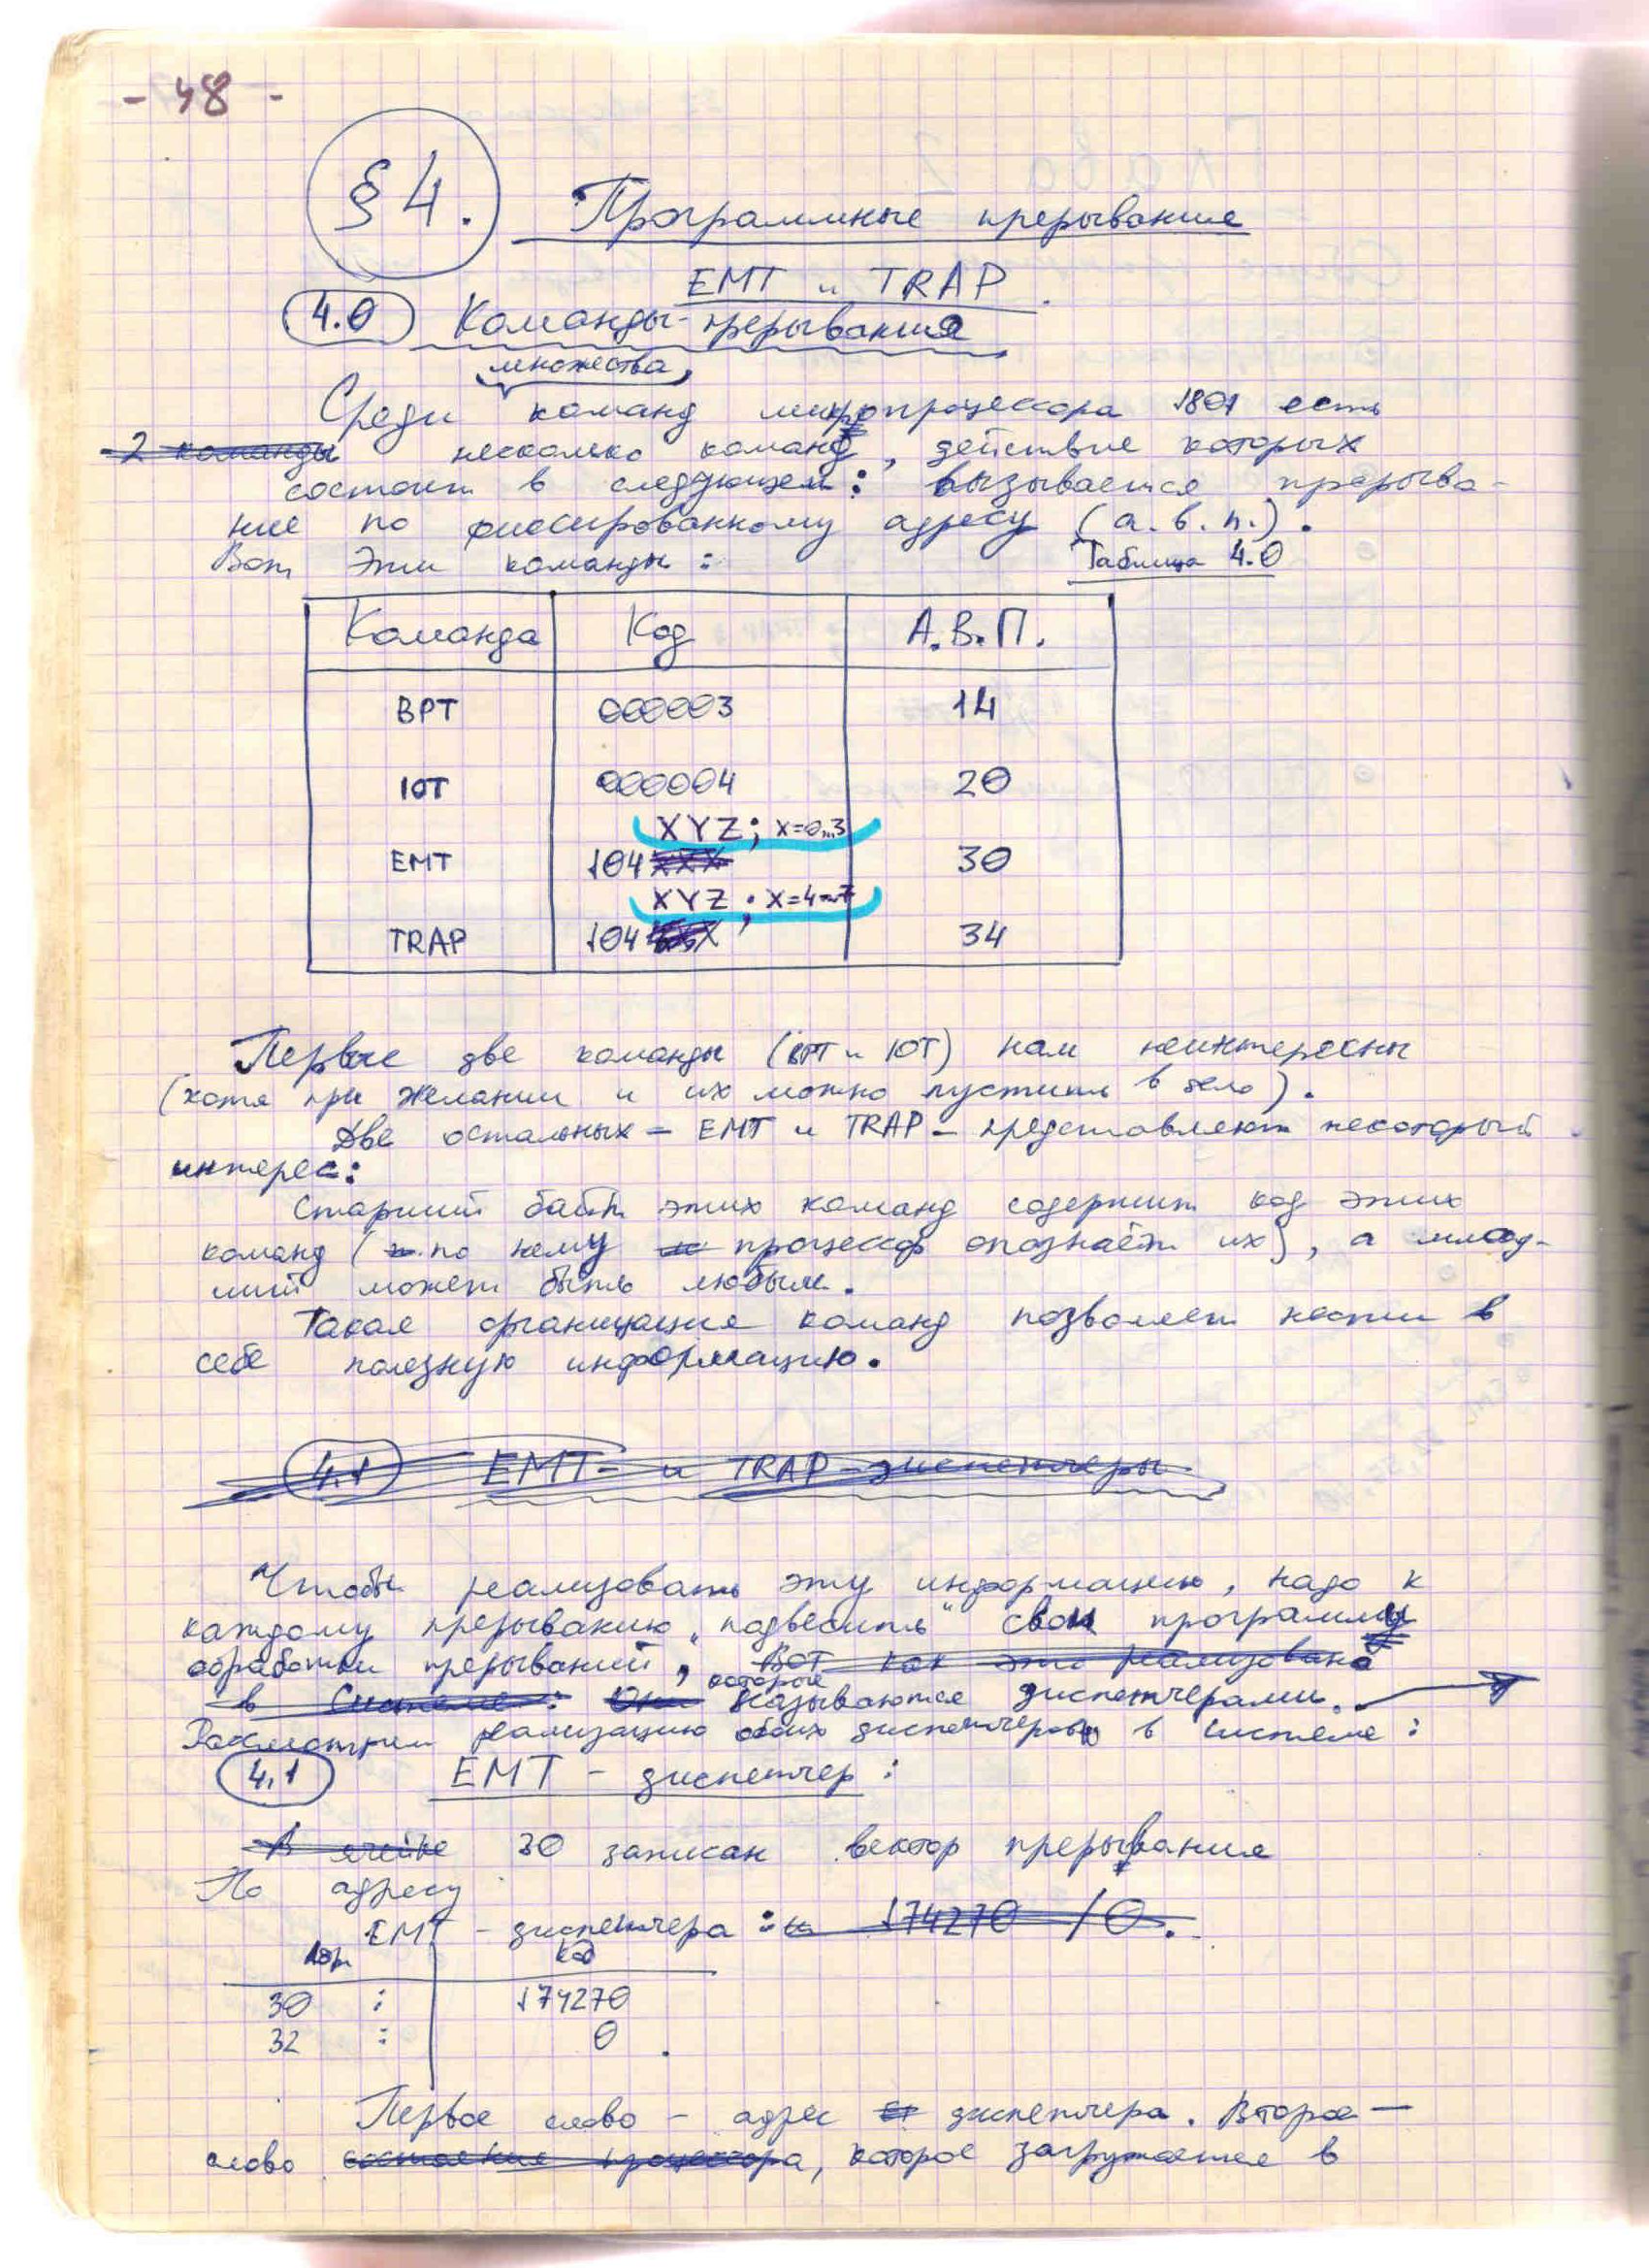 - 48 -
§ 4. Программные прерывания
EMT и TRAP.
4.0 Команды-прерывания
множества
Среди команд микропроцессора 1801 есть
2 команды несколько команд, действие которых
состоит в следующем: вызывается прерыва-
ние по фиксированному адресу (а.в.п.).
Вот эти команды: Таблица 4.0
Команда Код А.В.П.
BPT 000003 14
IOT 000004 20
XYZ; X=0...3
EMT 104XXX 30
XYZ; X=4...7
TRAP 104 34
Первые две команды (BPT и IOT) нам неинтересны
(хотя при желании и их можно пустить в дело).
Две остальных - EMT и TRAP - представляют некоторый
интерес:
Старший байт этих команд содержит код этих
команд (по нему процессор опознаёт их), а млад-
ший может быть любым.
Такая организация команд позволяет нести в
себе полезную информацию.
4.1 EMT- и TRAP-диспетчеры
Чтобы реализовать эту информацию, надо к
каждому прерыванию „подвесить" свою программу
обработки прерываний, Вот как это реализовано
которые
в Системе: Они называются диспетчерами.
Рассмотрим реализацию обоих диспетчеров в системе:
4.1 EMT - диспетчер:
В ячейке 30 записан вектор прерывания
По адресу
EMT - диспетчера: 174270 / 0.
Адр. Код
30 : 174270
32 : 0.
Первое слово - адрес диспетчера. Второе -
слово состояния процессора, которое загружается в